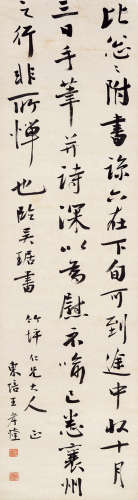 比怱怱附書諒亦在下旬可到途中收十月
三日手筆并詩深以為慰示喻已悉襄州
之行非所憚也 臨吳琚書
竹坪仁兄大人正
東培王孝煃